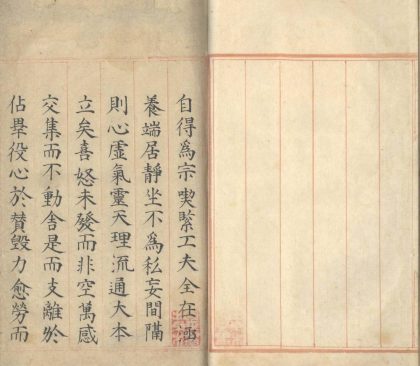 自得為宗喫緊工夫全在涵
養端居靜坐不為私妄間隔
則心虛氣靈天理流通大本
立矣喜怒未發而非空萬感
交集而不動舍是而支離於
佔畢役心於贊毀力愈勞而